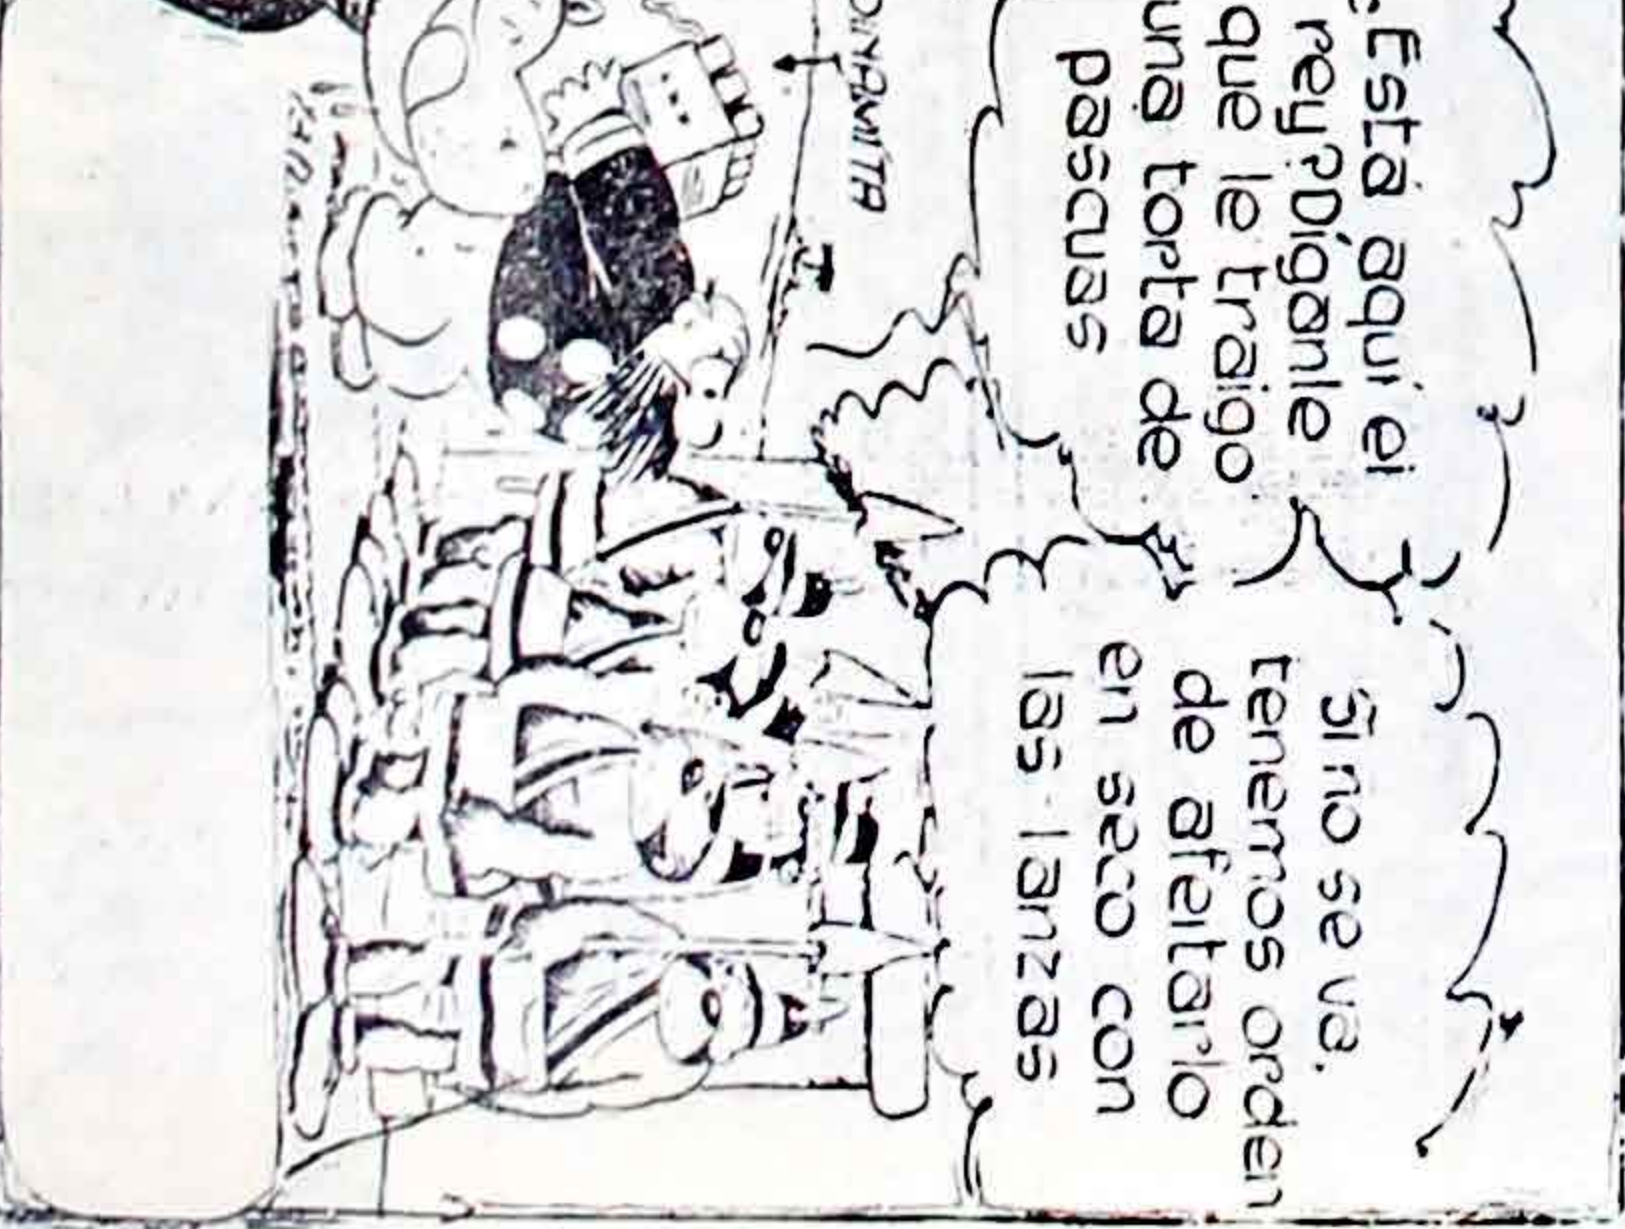 ¿Está aquí el
rey? Díganle
que le traigo
una torta de
pascuas
Si no se va.
tenemos orden
de afeitarlo
en seco con
las lanzas
DINAMITA